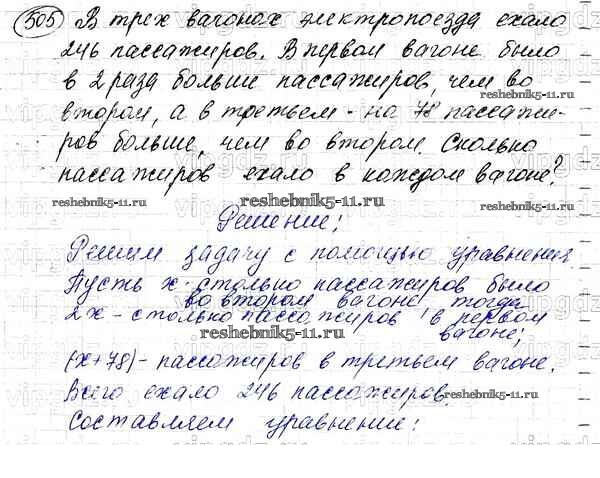 505 В трех вагонах электропоезда ехало
246 пассажиров. В первом вагоне было
в 2 раза больше пассажиров, чем во
втором, а в третьем - на 78 пассажи-
ров больше, чем во втором. Сколько
пассажиров ехало в каждом вагоне?
reshebnik5-11.ru
reshebnik5-11.ru
reshebnik5-11.ru
Решение:
Решим задачу с помощью уравнения.
Пусть х - столько пассажиров было
во втором вагоне, тогда
2х - столько пассажиров в первом
вагоне;
reshebnik5-11.ru
(х+78) - пассажиров в третьем вагоне.
Всего ехало 246 пассажиров.
reshebnik5-11.ru
Составляем уравнение: